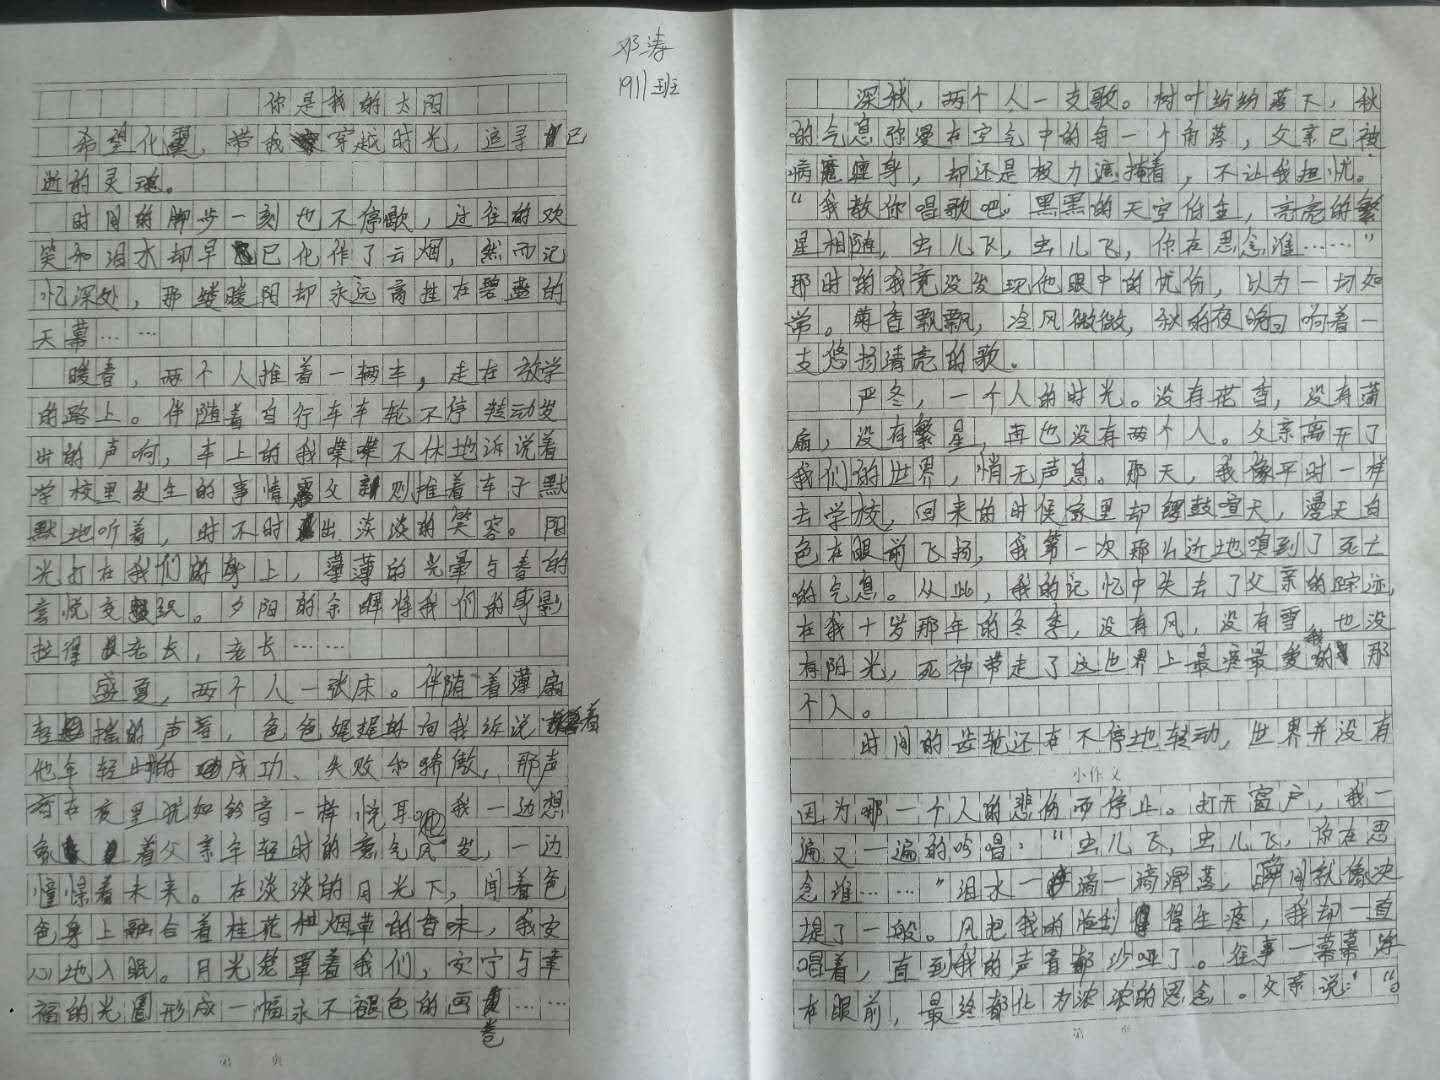 邓涛
1911班
你是我的太阳
希望化翼，带我穿越时光，追寻已
逝的灵魂。
时间的脚步一刻也不停歇，过往的欢
笑和泪水却早已化作了云烟，然而记
忆深处，那缕暖阳却永远高挂在碧蓝的
天幕……
暖春，两个人推着一辆车，走在放学
的路上。伴随着自行车车轮不停转动发
出的声响，车上的我喋喋不休地诉说着
学校里发生的事情，父亲则推着车子默
默地听着，时不时露出淡淡的笑容。阳
光打在我们的身上，薄薄的光晕与春的
喜悦交织。夕阳的余晖将我们的身影
拉得老长，老长……
盛夏，两个人一张床。伴随着薄扇
轻摇的声音，爸爸娓娓的向我诉说着
他年轻时的成功、失败和骄傲，那声
音在夜里犹如铃音一样悦耳。我一边想
象着父亲年轻时的意气风发，一边
憧憬着未来。在淡淡的月光下，闻着爸
爸身上融合着桂花和烟草的香味，我安
心地入眠。月光笼罩着我们，安宁与幸
福的光圈形成一幅永不褪色的画卷……
深秋，两个人一支歌。树叶纷纷落下，秋
的气息弥漫在空气中的每一个角落，父亲已被
病魔缠身，却还是极力遮掩着，不让我担忧。
“我教你唱歌吧：黑黑的天空低垂，亮亮的繁
星相随，虫儿飞，虫儿飞，你在思念谁……”
那时的我竟没发现他眼中的忧伤，以为一切如
常。舞香飘飘，冷风微微，秋的夜晚回响着一
支悠扬清亮的歌。
严冬，一个人的时光。没有花香，没有蒲
扇，没有繁星，再也没有两个人。父亲离开了
我们的世界，悄无声息。那天，我像平时一样
去学校，回来的时候家里却锣鼓喧天，漫天白
色在眼前飞扬，我第一次那么近地嗅到了死亡
的气息。从此，我的记忆中失去了父亲的踪迹，
在我十岁那年的冬季，没有风，没有雪，也没
有阳光，死神带走了这世界上最疼最爱我的那
个人。
时间的齿轮还在不停地转动，世界并没有
小作文
因为哪一个人的悲伤而停止。打开窗户，我一
遍又一遍的吟唱：“虫儿飞，虫儿飞，你在思
念谁……”泪水一滴一滴滑落，瞬间就像决
堤了一般。风把我的脸刮得生疼，我却一直
唱着，直到我的声音都沙哑了。往事一幕幕浮
在眼前，最终都化为浓浓的思念。父亲说：“
第 页
第 页